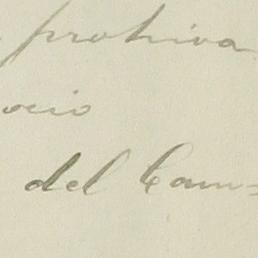 prohiva
ocio
del Cam=